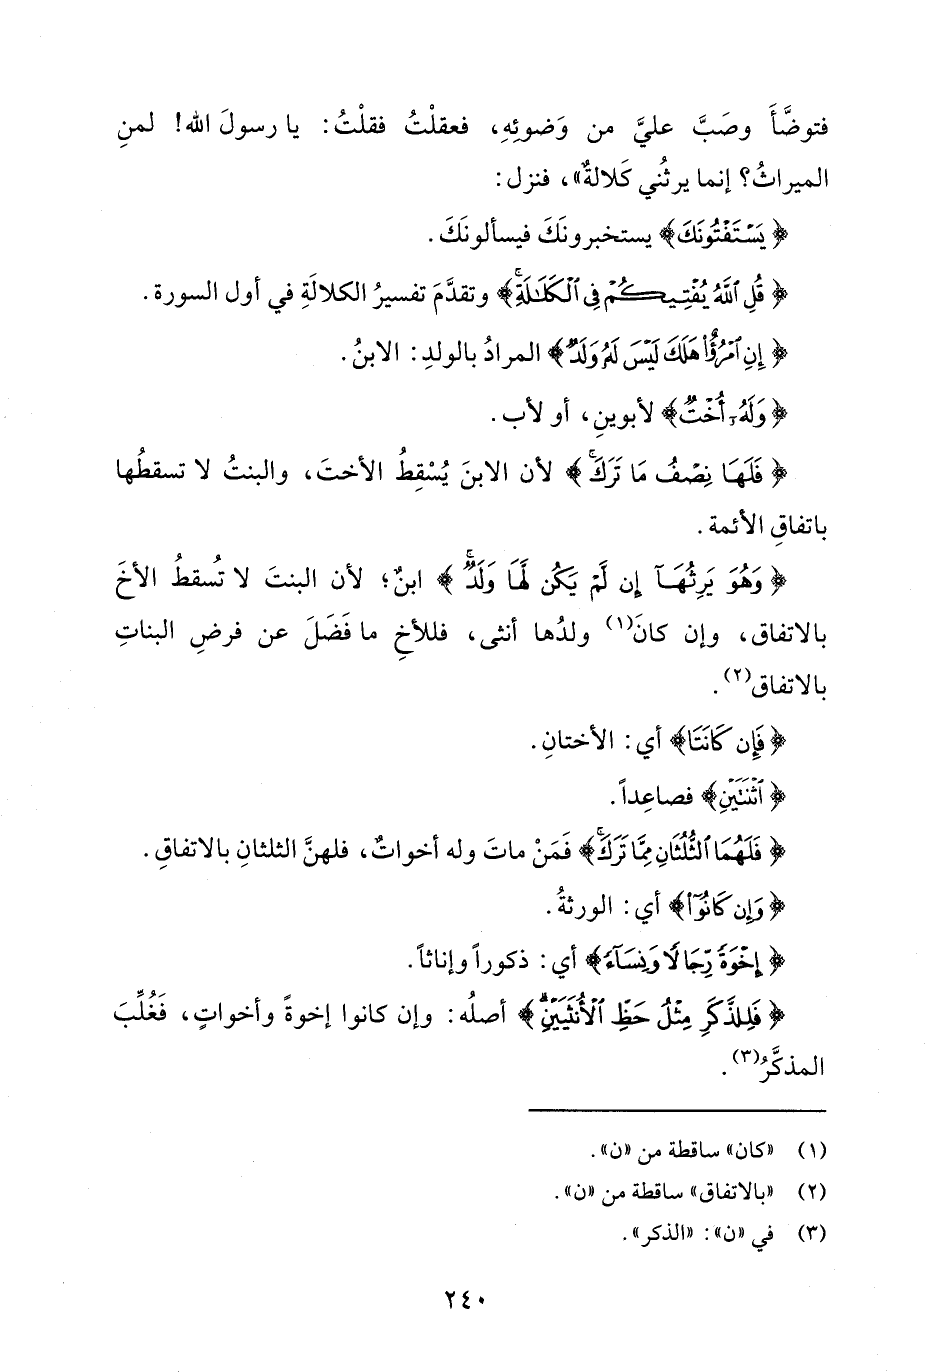 فتوضَّأَ وصَبَّ عليَّ من وَضوئِهِ، فعقلْتُ فقلْتُ: يا رسولَ الله! لمنِ
الميراثُ؟ إنما يرثُني كَلالةٌ»، فنزل:
﴿يَسْتَفْتُونَكَ﴾ يستخبرونَكَ فيسألونَكَ.
﴿قُلِ ٱللَّهُ يُفْتِيكُمْ فِى ٱلْكَلَٰلَةِۚ﴾ وتقدَّمَ تفسيرُ الكلالَةِ في أول السورة.
﴿إِنِ ٱمْرُؤٌا۟ هَلَكَ لَيْسَ لَهُۥ وَلَدٌ﴾ المرادُ بالولدِ: الابنُ.
﴿وَلَهُۥٓ أُخْتٌ﴾ لأبوينِ، أو لأب.
﴿فَلَهَا نِصْفُ مَا تَرَكَۚ﴾ لأن الابنَ يُسْقِطُ الأختَ، والبنتُ لا تسقطُها
باتفاقِ الأئمة.
﴿وَهُوَ يَرِثُهَآ إِن لَّمْ يَكُن لَّهَا وَلَدٌۚ﴾ ابنٌ؛ لأن البنتَ لا تُسقطُ الأخَ
بالاتفاق، وإن كانَ(١) ولدُها أنثى، فللأخِ ما فَضَلَ عن فرضِ البناتِ
بالاتفاق(٢).
﴿فَإِن كَانَتَا﴾ أي: الأختانِ.
﴿ٱثْنَتَيْنِ﴾ فصاعِداً.
﴿فَلَهُمَا ٱلثُّلُثَانِ مِمَّا تَرَكَۚ﴾ فَمَنْ ماتَ وله أخواتٌ، فلهنَّ الثلثانِ بالاتفاقِ.
﴿وَإِن كَانُوٓا۟﴾ أي: الورثةُ.
﴿إِخْوَةً رِّجَالًا وَنِسَآءً﴾ أي: ذكوراً وإناثاً.
﴿فَلِلذَّكَرِ مِثْلُ حَظِّ ٱلْأُنثَيَيْنِۗ﴾ أصلُه: وإن كانوا إخوةً وأخواتٍ، فَغُلِّبَ
المذكَّرُ(٣).
(١) «كان» ساقطة من «ن».
(٢) «بالاتفاق» ساقطة من «ن».
(٣) في «ن»: «الذكر».
٢٤٠